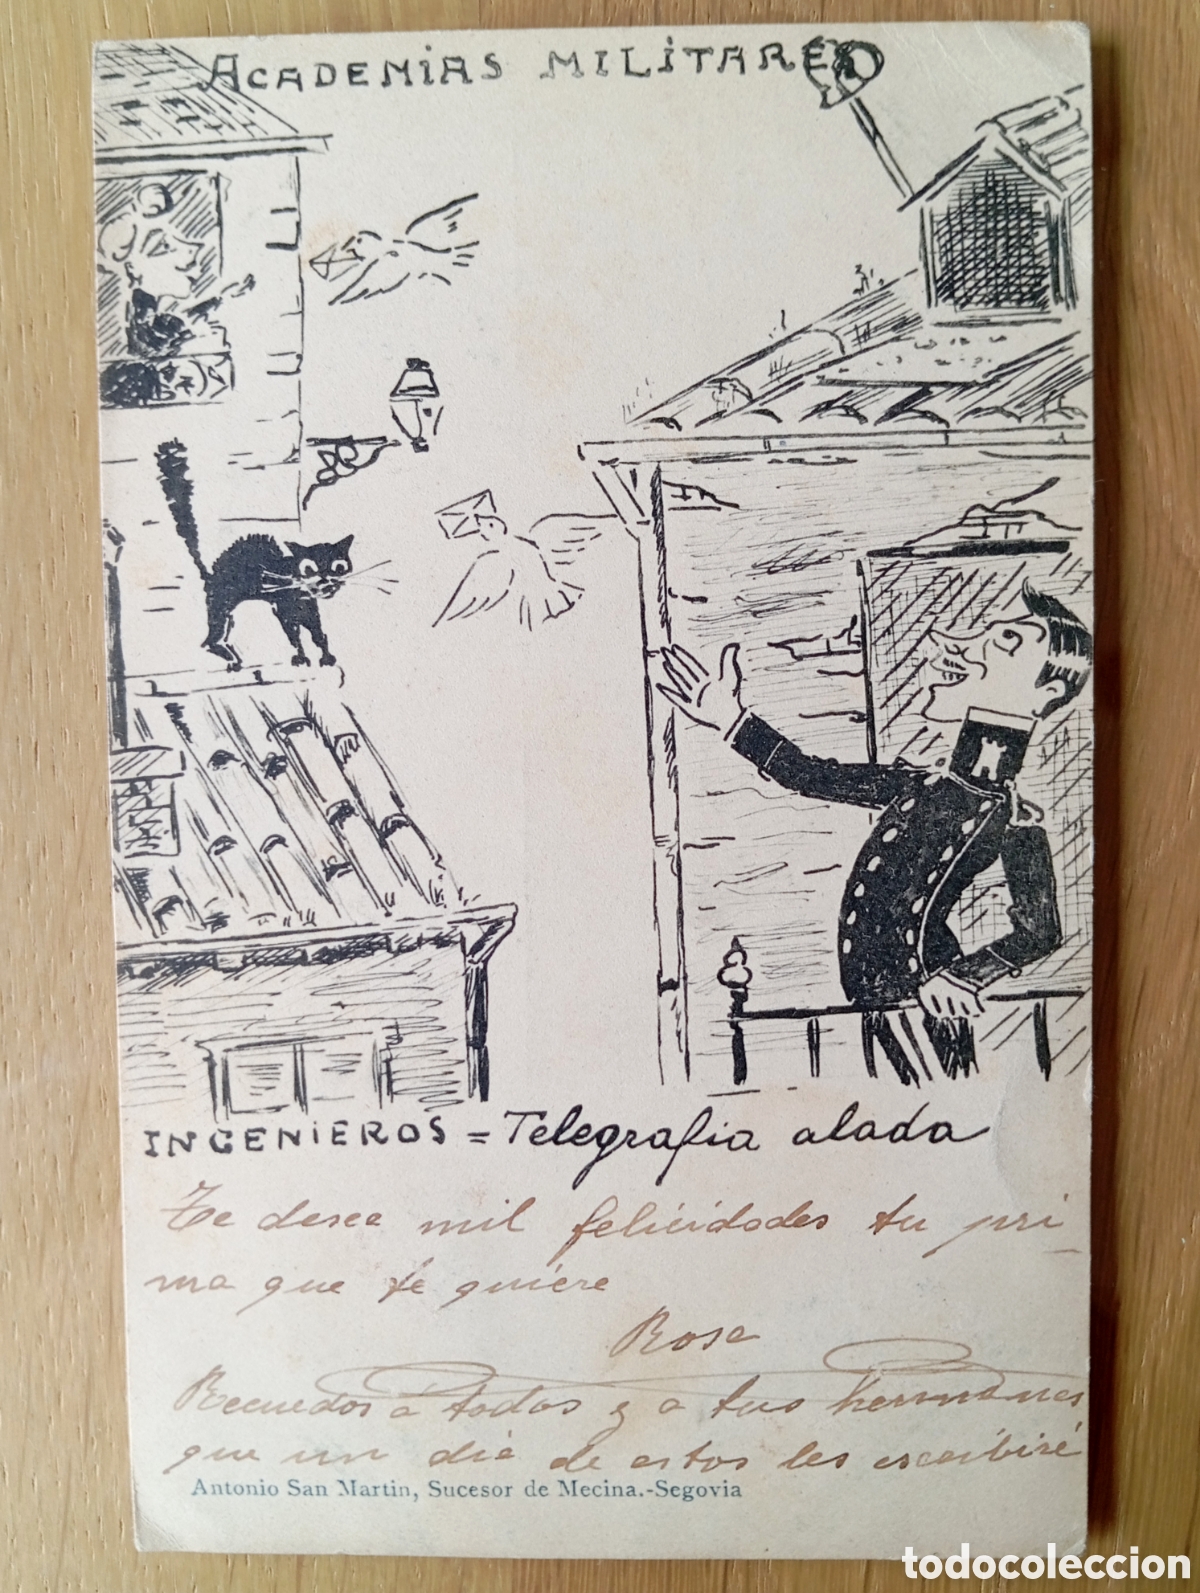 ACADEMIAS MILITARES
INGENIEROS = Telegrafia alada
Te desea mil felicidades tu pri-
ma que te quiere
Rosa
Recuerdos a todos y a tus hermanas
que un dia de estos les escribiré
Antonio San Martin, Sucesor de Mecina.-Segovia
todocoleccion